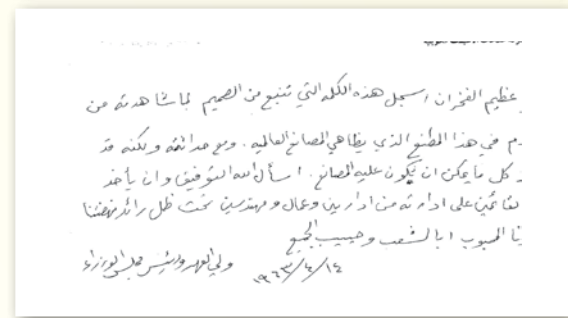 عظيم الفخر ان اسجل هذه الكلمه التي تنبع من الصميم لما شاهدته من
م في هذا المصنع الذي يضاهي المصانع العالميه . ومع حداثته ولكنه قد
كل ما يمكن ان يكون عليه المصانع . اسأل الله التوفيق وان يأخذ
لقائمين على ادارته من اداريين وعمال ومهندسين تحت ظل رائد نهضتنا
نا المحبوب ابا الشعب وحبيب الجميع
ولي العهد ورئيس مجلس الوزراء
١٩٦٣/٤/١٤